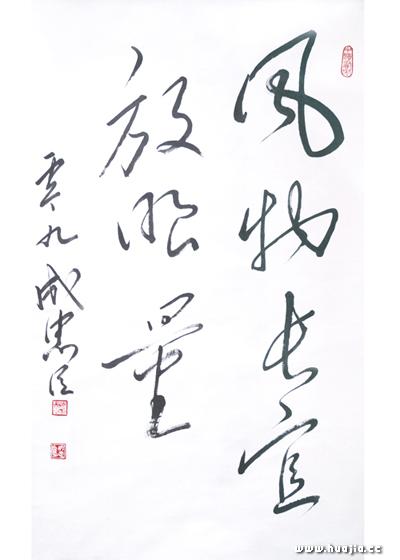 风物长宜
放眼量
零九 成忠臣
www.huajia.cc